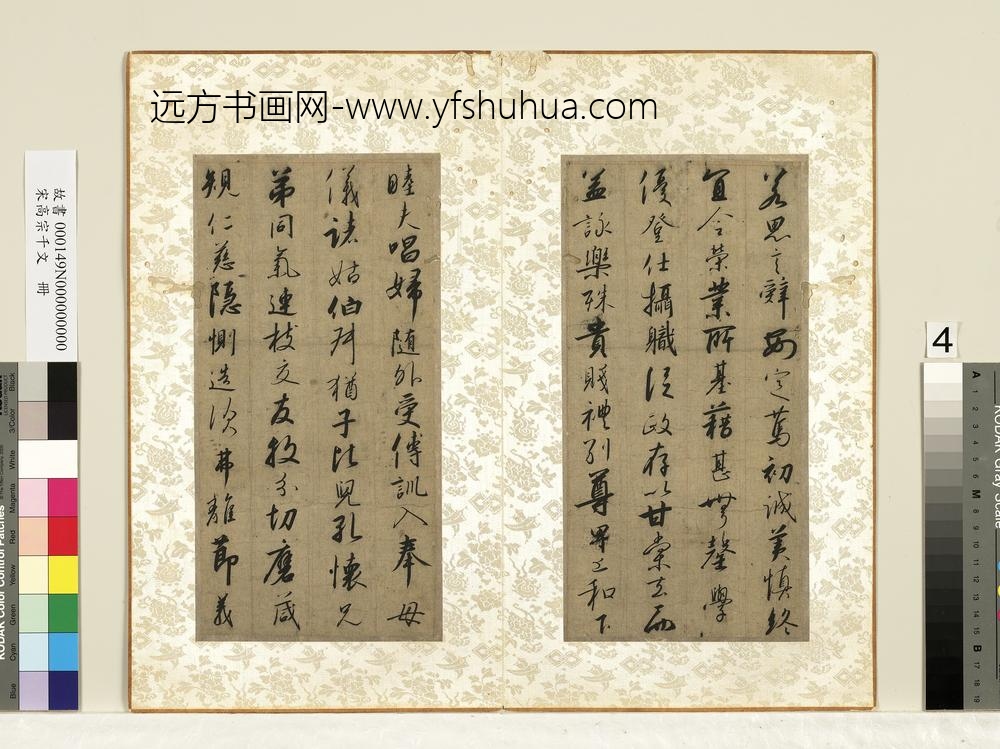 远方书画网-www.yfshuhua.com
若思言辭安定篤初誠美慎終
宜令榮業所基藉甚無罄學
優登仕攝職從政存以甘棠去而
益詠樂殊貴賤禮別尊卑上和下
睦夫唱婦隨外受傅訓入奉母
儀諸姑伯叔猶子比兒孔懷兄
弟同氣連枝交友投分切磨箴
規仁慈隱惻造次弗離節義
故書 000149N000000000
宋高宗千文 冊
4
KODAK Color Control Patches
Blue
Cyan
Green
Yellow
Red
Magenta
White
3/Color
Black
KODAK Gray Scale
A
1
2
3
4
5
6
M
8
9
10
11
12
13
14
15
B
17
18
19